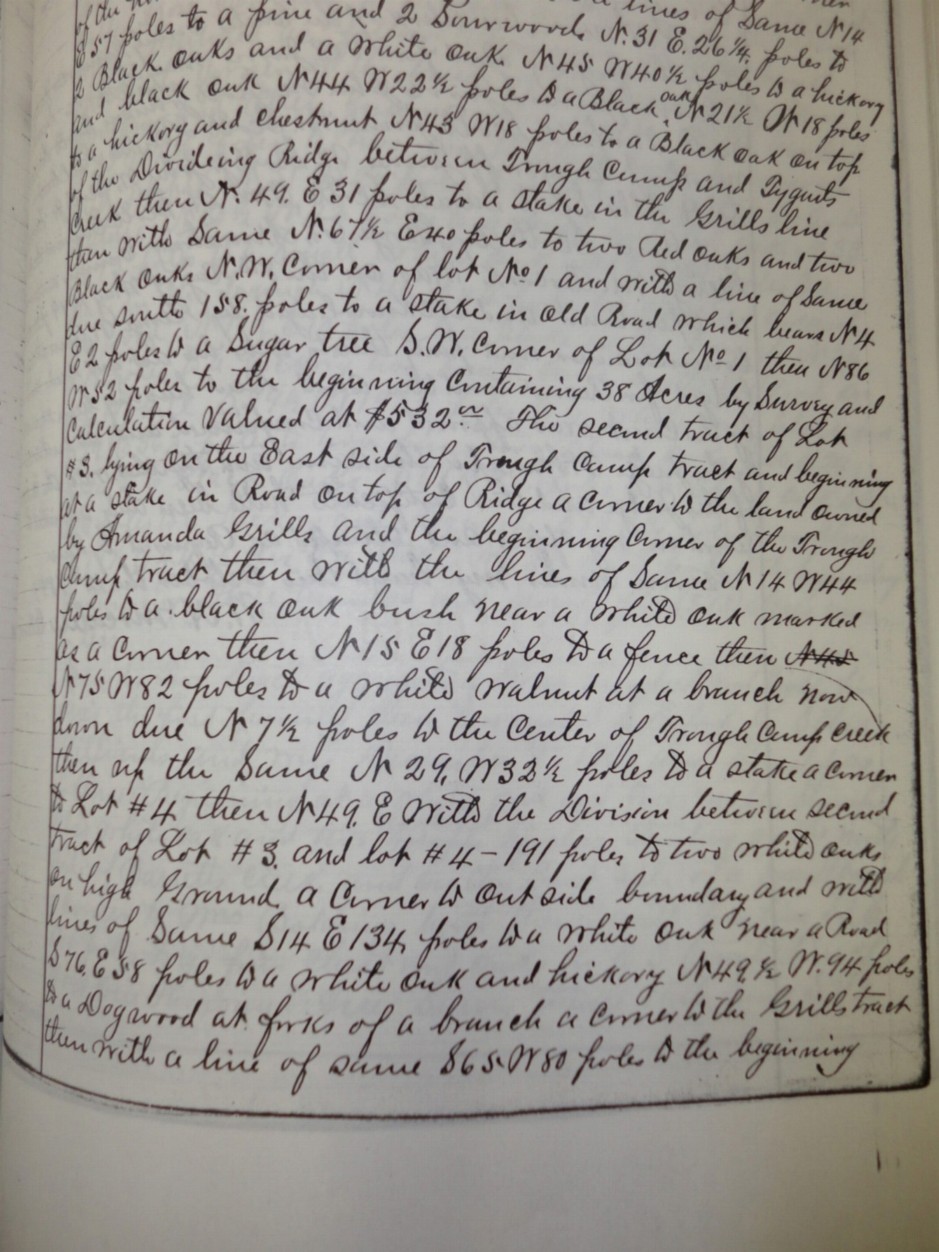 of the
lines of Same N 14
E 57 poles to a pine and 2 Sourwoods N. 31 E. 26 1/4 poles to
2 Black oaks and a white oak N 45 W 40 1/2 poles to a hickory
and black oak N 44 W 22 1/2 poles to a Black oak N 21 1/2 W 18 poles
to a hickory and chestnut N 43 W 18 poles to a Black oak on top
of the Divideing Ridge between Trough Camp and Tygarts
Creek then N. 49. E 31 poles to a stake in the Grills line
then with Same N. 67 1/2 E 40 poles to two Red oaks and two
Black oaks N. W. Corner of lot No 1 and with a line of Same
due south 158. poles to a stake in old Road which bears N 4
E 2 poles to a Sugar tree S. W. Corner of Lot No 1 then N 86
W 52 poles to the beginning Containing 38 Acres by Survey and
Calculation Valued at $532.00 The second tract of Lot
#3. lying on the East side of Trough Camp tract and beginning
at a stake in Road on top of Ridge a corner to the land owned
by Amanda Grills and the beginning Corner of the Trough
Camp tract then with the lines of Same N 14 W 44
poles to a black oak bush near a white oak marked
as a Corner then N 15 E 18 poles to a fence then N 45
N 75 W 82 poles to a white walnut at a branch now
down due N 7 1/2 poles to the Center of Trough Camp Creek
then up the Same N 29, W 32 1/2 poles to a stake a corner
to Lot #4 then N 49. E with the Division between second
tract of Lot #3. and lot #4 - 191 poles to two white oaks
on high Ground. a Corner to out side boundary and with
lines of Same S 14 E 134, poles to a white oak near a Road
S 76, E 58 poles to a white oak and hickory N 49, 1/2 W. 94 poles
to a Dogwood at forks of a branch a corner to the Grills tract
then with a line of same S 65 W 80 poles to the beginning